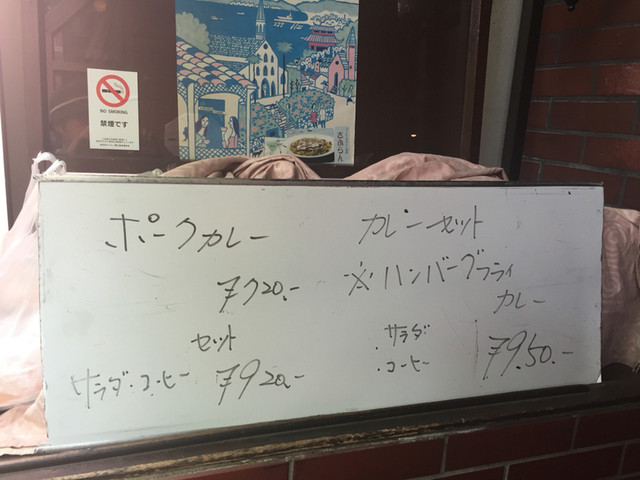 NO SMOKING
禁煙です
さらうどん
ポークカレー
¥720.-
セット
サラダ・コーヒー ¥920.-
カレーセット
※ハンバーグフライ
カレー
・サラダ
・コーヒー
¥950.-